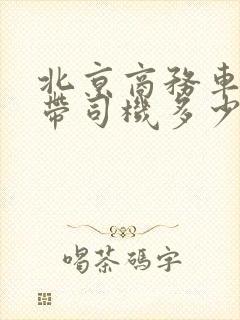 北京商務車
帶司機多少
喝茶碼字